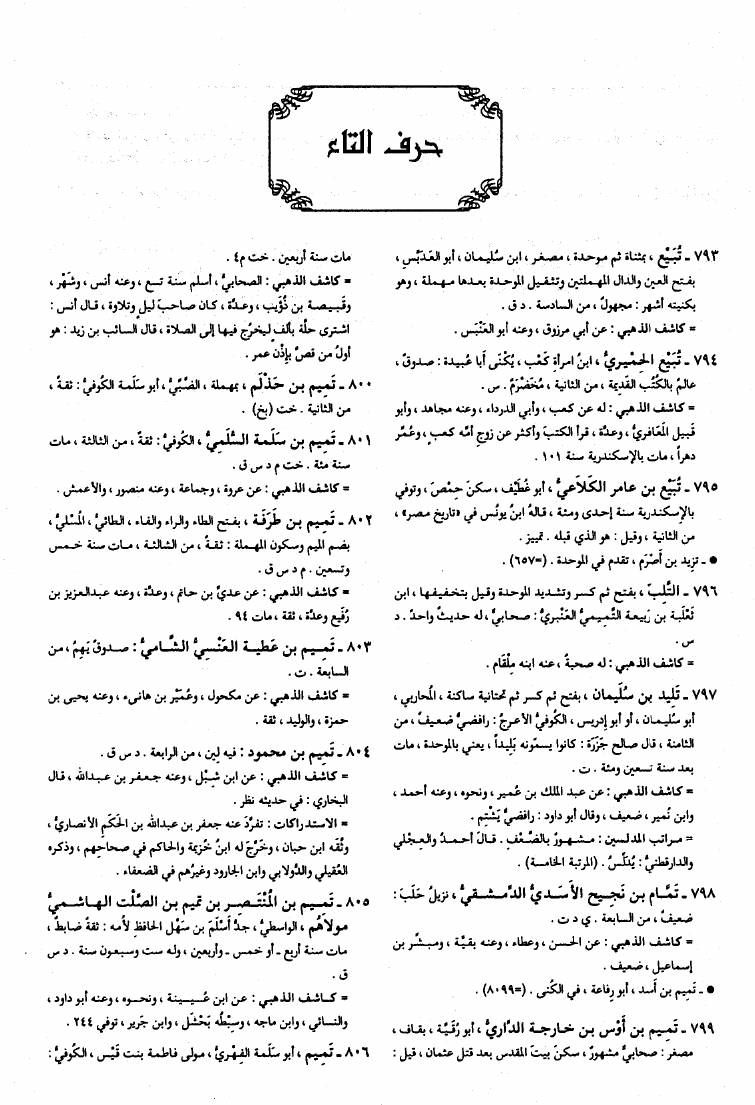 حرف التاء
٧٩٣ ـ تُبَيْع ، بمثناة ثم موحدة ، مصغر ، ابن سُليمان ، أبو العَدَبَّس ،
بفتح العين والدال المهملتين وتثقيل الموحدة بعدها مهملة ، وهو
بكنيته أشهر : مجهولٌ ، من السادسة . د ق .
= كاشف الذهبي : عن أبي مرزوق ، وعنه أبو العَنْبَس .
٧٩٤ ـ تُبَيْع الحِمْيريُّ ، ابنُ امرأةِ كَعْب ، يُكْنَى أبا عُبيدة : صدوقٌ ،
عالمٌ بالكُتُب القديمة ، من الثانية ، مُخَضْرَمٌ . س .
= كاشف الذهبي : له عن كعب ، وأبي الدرداء ، وعنه مجاهد ، وأبو
قبيل المَعَافريُّ ، وعدَّة ، قرأ الكتبَ وأكثر عن زوجِ أمِّه كعبٍ ، وعُمِّر
دهراً ، مات بالإسكندرية سنة ١٠١ .
٧٩٥ ـ تُبَيْع بن عامر الكَلاَعيُّ ، أبو غُطَيْف ، سكنَ حِمْصَ ، وتوفي
بالإسكندرية سنة إحدى ومئة ، قاله ابنُ يونُس في «تاريخ مصر» ،
من الثانية ، وقيل : هو الذي قبله . تمييز .
● ـ تزيد بن أصْرَم ، تقدم في الموحدة . (=٦٥٧) .
٧٩٦ ـ التَّلِبّ ، بفتح ثم كسر وتشديد الموحدة وقيل بتخفيفها ، ابن
ثَعْلَبة بن رَبيعة التَّميميُّ العَنْبريُّ : صحابيٌّ ، له حديثٌ واحدٌ . د
س .
= كاشف الذهبي : له صحبةٌ ، عنه ابنه مِلْقَام .
٧٩٧ ـ تَلِيد بن سُلَيمان ، بفتح ثم كسر ثم تحتانية ساكنة ، المُحاربي ،
أبو سُليمان ، أو أبو إدريس ، الكُوفيُّ الأعرجُ : رافضيٌّ ضعيفٌ ، من
الثامنة ، قال صالح جَزَرَة : كانوا يسمُّونه بَلِيداً ، يعني بالموحدة ، مات
بعد سنة تسعين ومئة . ت .
= كاشف الذهبي : عن عبد الملك بن عُمير ، ونحوه ، وعنه أحمد ،
وابن نُمير ، ضعيف ، وقال أبو داود : رافضيٌّ يَشْتِم .
= مراتب المدلسين : مشهورٌ بالضَّعْف . قالَ أحمدُ والعِجْلي
والدارقطنيُّ : يُدَلِّسُ . (المرتبة الخامسة) .
٧٩٨ ـ تَمَّام بن نَجِيح الأسَديُّ الدِّمشقيُّ ، نزيلُ حَلَبَ :
ضعيفٌ ، من السابعة . ي د ت .
= كاشف الذهبي : عن الحسن ، وعطاء ، وعنه بقيَّة ، ومبشِّر بن
إسماعيل ، ضعيف .
● ـ تميم بن أسد ، أبو رِفاعة ، في الكُنى . (=٨٠٩٩) .
٧٩٩ ـ تَميم بن أوْس بن خارجة الدَّاريُّ ، أبو رُقيَّة ، بقاف ،
مصغر : صحابيٌّ مشهورٌ ، سكنَ بيتَ المقدس بعد قتل عثمان ، قيل :
مات سنة أربعين . خت م٤ .
= كاشف الذهبي : الصحابيُّ ، أسلم سنة تسع ، وعنه أنس ، وشَهْر ،
وقَبيصة بن ذُؤيب ، وعدَّة ، كان صاحبَ ليلٍ وتلاوة ، قال أنس :
اشترى حلَّة بألفٍ ليخرُج فيها إلى الصلاة ، قال السائب بن زيد : هو
أولُ من قصَّ بإذْنِ عمر .
٨٠٠ ـ تَميم بن حَذْلَم ، بمهملة ، الضَّبِّيُّ ، أبو سَلَمة الكُوفيُّ : ثقةٌ ،
من الثانية . خت (بخ) .
٨٠١ ـ تَميم بن سَلَمة السُّلَميُّ ، الكُوفيُّ : ثقةٌ ، من الثالثة ، مات
سنة مئة . خت م د س ق .
= كاشف الذهبي : عن عروة ، وجماعة ، وعنه منصور ، والأعمش .
٨٠٢ ـ تَميم بن طَرَفَة ، بفتح الطاء والراء والفاء ، الطائيُّ ، المُسْليُّ ،
بضم الميم وسكون المهملة : ثقةٌ ، من الثالثة ، مات سنة خمس
وتسعين . م د س ق .
= كاشف الذهبي : عن عديِّ بن حاتم ، وعدَّة ، وعنه عبدالعزيز بن
رُفَيع وعدَّة ، ثقة ، مات ٩٤ .
٨٠٣ ـ تَميم بن عَطية العَنْسيُّ الشَّاميُّ : صدوقٌ يَهِمُ ، من
السابعة . ت .
= كاشف الذهبي : عن مكحول ، وعُمَيْر بن هانىء ، وعنه يحيى بن
حمزة ، والوليد ، ثقة .
٨٠٤ ـ تَميم بن محمود : فيه لِين ، من الرابعة . د س ق .
= كاشف الذهبي : عن ابن شِبْل ، وعنه جعفر بن عبدالله ، قال
البخاري : في حديثه نظر .
= الاستدراكات : تفرَّدَ عنه جعفر بن عبدالله بن الحَكَم الأنصاريُّ ،
وثَّقَه ابن حبان ، وخَرَّجَ له ابنُ خُزيمة والحاكم في صحاحِهم ، وذكره
العُقيلي والدُّولابي وابن الجارود وغيرُهم في الضعفاء .
٨٠٥ ـ تَميم بن المُنْتَصر بن تميم بن الصَّلْت الهاشميُّ
مولاهُم ، الواسطيُّ ، جدُّ أسْلَمَ بن سَهْل الحافظِ لأمه : ثقةٌ ضابطٌ ،
مات سنة أربع ـ أو خمس ـ وأربعين ، وله ست وسبعون سنة . د س
ق .
= كاشف الذهبي : عن ابن عُيينة ، ونحوه ، وعنه أبو داود ،
والنسائي ، وابن ماجه ، وسِبْطُه بَحْشَل ، وابن جرير ، توفي ٢٤٤ .
٨٠٦ ـ تَميم ، أبو سَلَمة الفِهْريُّ ، مولى فاطمة بنت قَيْس ، الكُوفيُّ :